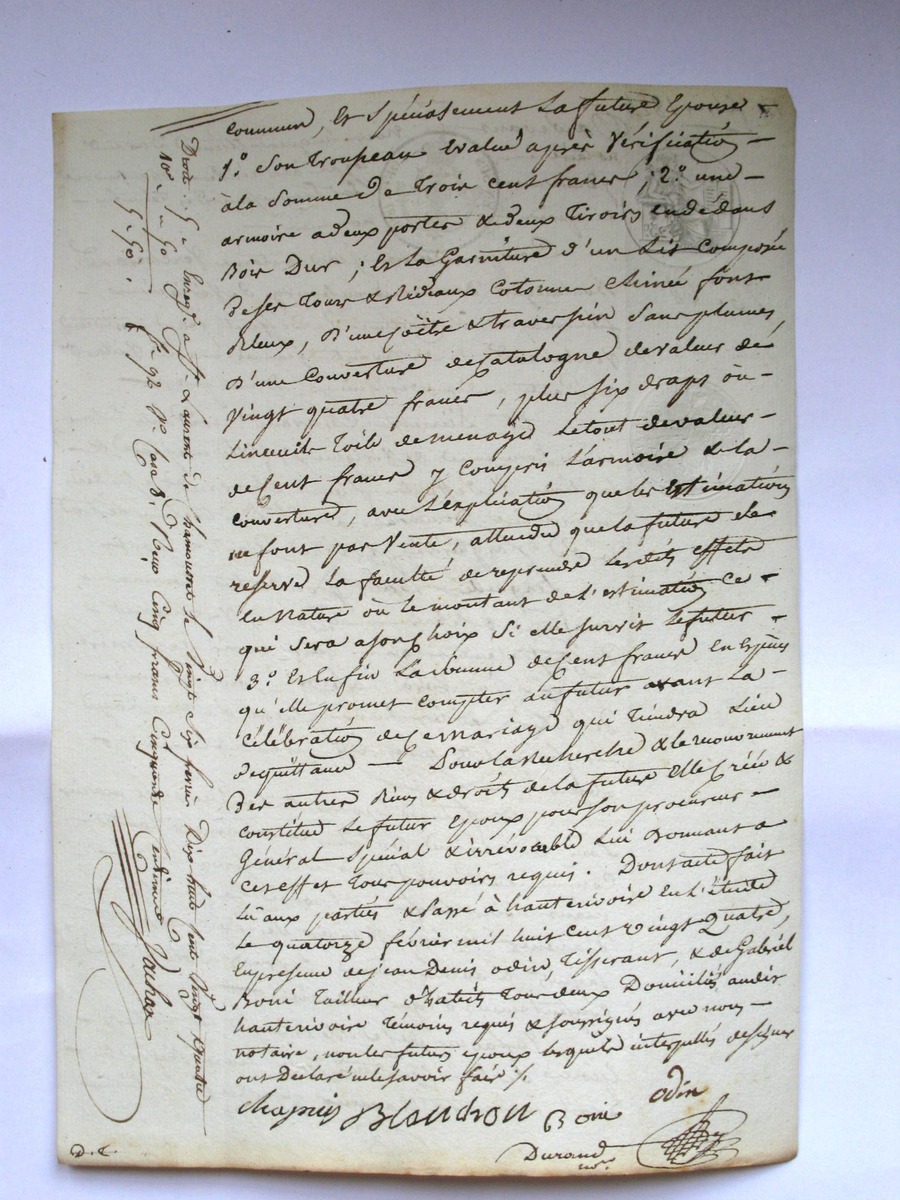 commun, Et Spécialement La future Epouse
1.º Son trousseau Evalué après Vérification
à la Somme de Trois cent francs ; 2.º une
armoire a deux portes & deux Tiroirs en dedans
Bois Dur ; Et La Garniture d'un Lit Composée
De ses Tours & Rideaux Cotonne Chinée fond
Bleux, D'une Coëtre & traverssin Sans plumes
D'une Couverture de Catalogne de valeur de
vingt quatre francs, plus six draps ou
Linceuils Toile de menage Le tout de valeur
de Cent francs y Compris L'armoire & La
couverture, avec L'explication que les Estimations
ne font pas Vente, attendu que la future Se
reserve La faculté de reprendre Lesdits effets
En Nature où le montant de L'estimation Ce
qui Sera a son Choix Si elle Survit Le futur
3.º Et Enfin La Somme de Cent francs en Espèces
qu'elle promet Compter au futur avant La
Célébration de Ce mariage qui Tiendra Lieu
De quittance — Pour la Recherche & le recouvrement
Des autres Biens & droits de la future Elle Créée &
Constitue Le futur Epoux pour Son procureur
Général Spécial & irrévocable Lui Donnant a
Cet effet Tous pouvoirs requis. Dont acte fait
Lû aux parties & Passé à hauterivoire En L'étude
Le quatorze février mil huit Cent vingt Quatre,
En présence de jean Denis odin, Tisserant, & de Gabriel
Boni Tailleur d'habits Tous deux Domiciliés audit
hauterivoire Témoins requis & soussignés avec nous
notaire, non les futurs époux lesquels interpellés de signer
ont Déclaré ne le savoir faire ./.
chapuis Blanchon Boni odin
Durand
no.re
D. C.
Droit 5 " "
10e " 50
5 " 50
Enreg. a St. Laurent de Chamousset le Vingt Six fevrier Dix huit Cent Vingt quatre
fo 92 Vo Case 8, Reçu Cinq francs Cinquante Centimes